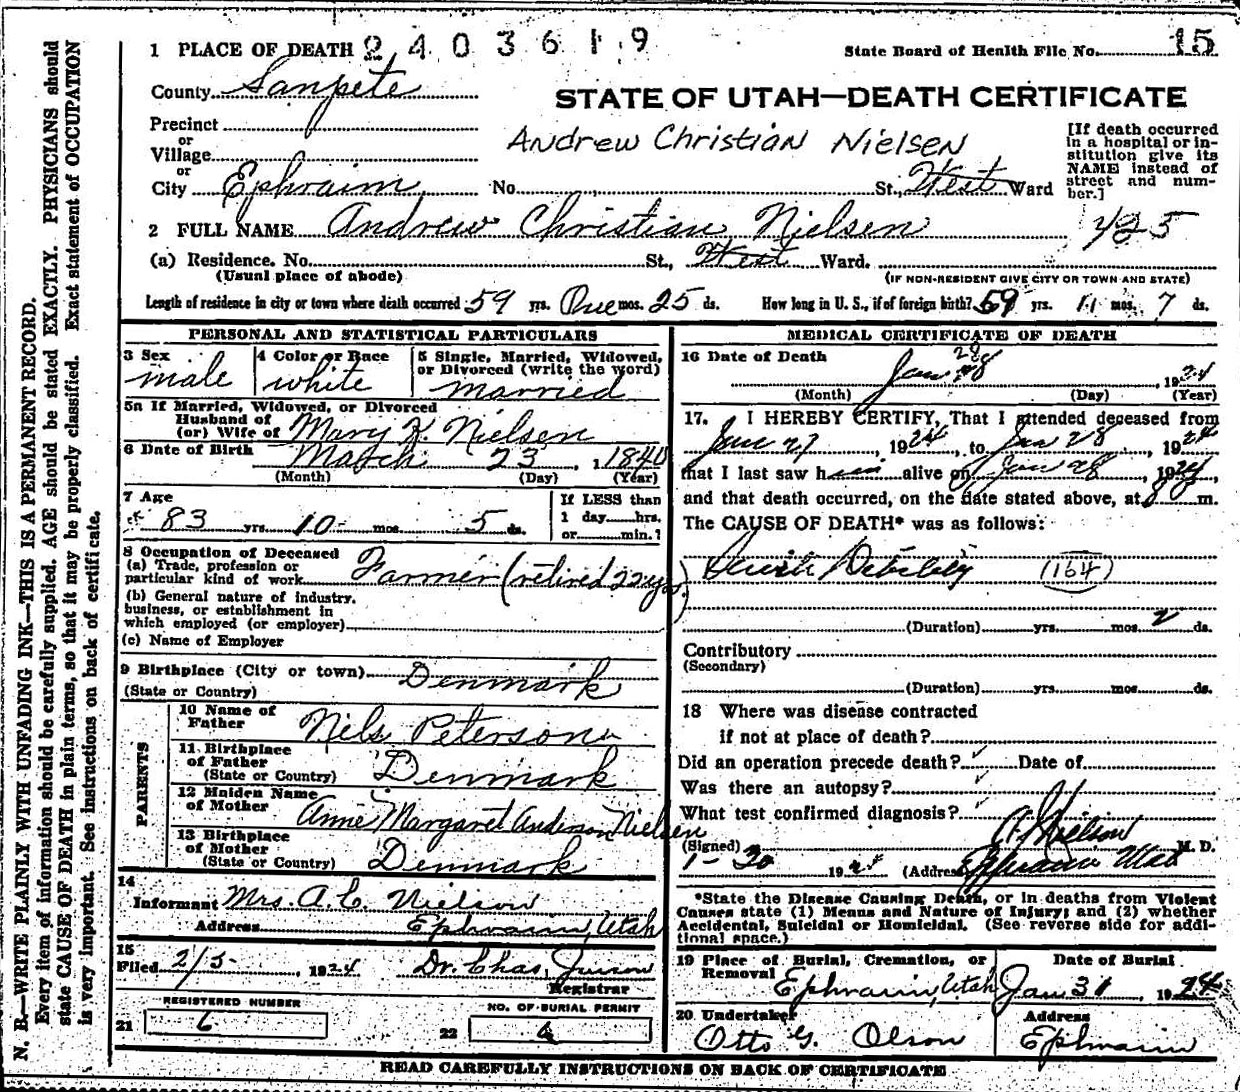 1 PLACE OF DEATH 2403619
State Board of Health File No. 15
County Sanpete
STATE OF UTAH—DEATH CERTIFICATE
Precinct
or
Village
or
City Ephraim No. St., West Ward
Andrew Christian Nielsen
[If death occurred
in a hospital or in-
stitution give its
NAME instead of
street and num-
ber.]
2 FULL NAME Andrew Christian Nielsen
425
(a) Residence. No. St., West Ward.
(Usual place of abode) (IF NON-RESIDENT GIVE CITY OR TOWN AND STATE)
Length of residence in city or town where death occurred 59 yrs. One mos. 25 ds. How long in U. S., if of foreign birth? 59 yrs. 11 mos. 7 ds.
PERSONAL AND STATISTICAL PARTICULARS
3 Sex male
4 Color or Race white
5 Single, Married, Widowed,
or Divorced (write the word)
married
5a If Married, Widowed, or Divorced
Husband of
(or) Wife of Mary K. Nielsen
6 Date of Birth March 23, 1840
(Month) (Day) (Year)
7 Age
83 yrs. 10 mos. 5 ds.
If LESS than
1 day hrs.
or min.?
8 Occupation of Deceased
(a) Trade, profession or
particular kind of work Farmer (retired 22 yrs.)
(b) General nature of industry,
business, or establishment in
which employed (or employer)
(c) Name of Employer
9 Birthplace (City or town)
(State or Country) Denmark
PARENTS
10 Name of
Father Nels Peterson
11 Birthplace
of Father
(State or Country) Denmark
12 Maiden Name
of Mother Anne Margaret Anderson Nielsen
13 Birthplace
of Mother
(State or Country) Denmark
14
Informant Mrs. A. C. Nielson
Address Ephraim, Utah
15
Filed 2/5, 1924 Dr. Chas.
Registrar
REGISTERED NUMBER
21 6
NO. OF BURIAL PERMIT
22 4
MEDICAL CERTIFICATE OF DEATH
16 Date of Death
Jan 28, 1924
(Month) (Day) (Year)
17. I HEREBY CERTIFY, That I attended deceased from
Jan 27, 1924, to Jan 28, 1924
that I last saw him alive on Jan 28, 1924,
and that death occurred, on the date stated above, at 8 P m.
The CAUSE OF DEATH* was as follows:
Senile Debility (164)
(Duration) yrs. mos. 2 ds.
Contributory
(Secondary)
(Duration) yrs. mos. ds.
18 Where was disease contracted
if not at place of death?
Did an operation precede death? Date of
Was there an autopsy?
What test confirmed diagnosis?
(Signed) A. Nielson M. D.
1-30 1924 (Address) Ephraim Utah
*State the Disease Causing Death, or in deaths from Violent
Causes state (1) Means and Nature of Injury; and (2) whether
Accidental, Suicidal or Homicidal. (See reverse side for addi-
tional space.)
19 Place of Burial, Cremation, or
Removal Ephraim, Utah
Date of Burial
Jan 31, 1924
20 Undertaker
Otto G. Olson
Address
Ephraim
READ CAREFULLY INSTRUCTIONS ON BACK OF CERTIFICATE
N. B.—WRITE PLAINLY WITH UNFADING INK—THIS IS A PERMANENT RECORD.
Every item of information should be carefully supplied. AGE should be stated EXACTLY. PHYSICIANS should
state CAUSE OF DEATH in plain terms, so that it may be properly classified. Exact statement of OCCUPATION
is very important. See instructions on back of certificate.